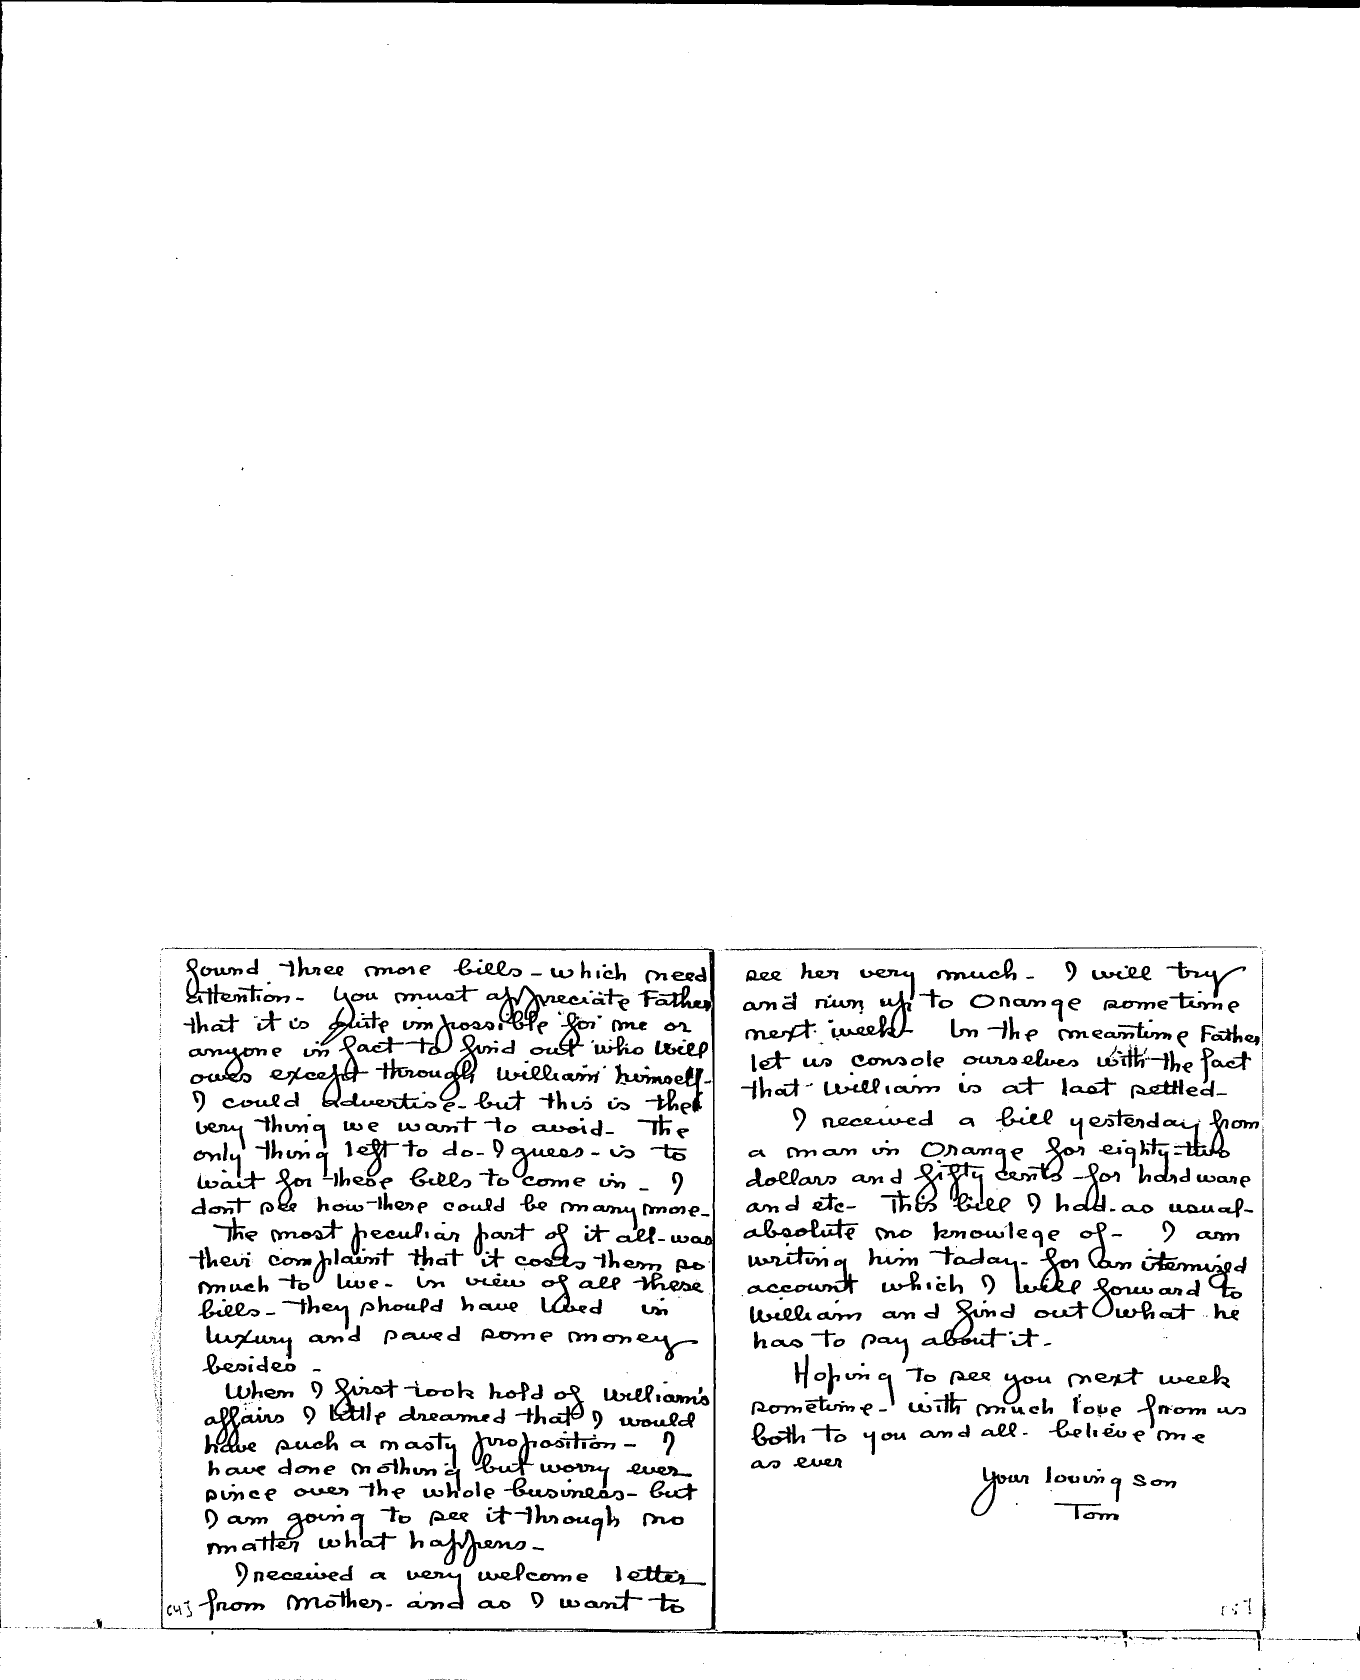 found three more bills - which need
attention - You must appreciate Father
that it is quite impossible for me or
anyone in fact to find out who Will
owes except through William himself -
I could advertise - but this is the
very thing we want to avoid - The
only thing left to do - I guess - is to
wait for these bills to come in - I
dont see how there could be many more -
The most peculiar part of it all - was
their complaint that it costs them so
much to live - in view of all these
bills - they should have lived in
luxury and saved some money
besides -
When I first took hold of William's
affairs I little dreamed that I would
have such a nasty proposition - I
have done nothing but worry ever
since over the whole business - but
I am going to see it through no
matter what happens -
I received a very welcome letter
from Mother - and as I want to
[4]
see her very much - I will try
and run up to Orange sometime
next week - In the meantime Father
let us console ourselves with the fact
that William is at last settled -
I received a bill yesterday from
a man in Orange for eighty-two
dollars and fifty cents - for hardware
and etc - This bill I had - as usual -
absolute no knowlege of - I am
writing him today - for an itemized
account which I will forward to
William and find out what he
has to pay about it -
Hoping to see you next week
sometime - with much love from us
both to you and all - believe me
as ever
Your loving son
Tom